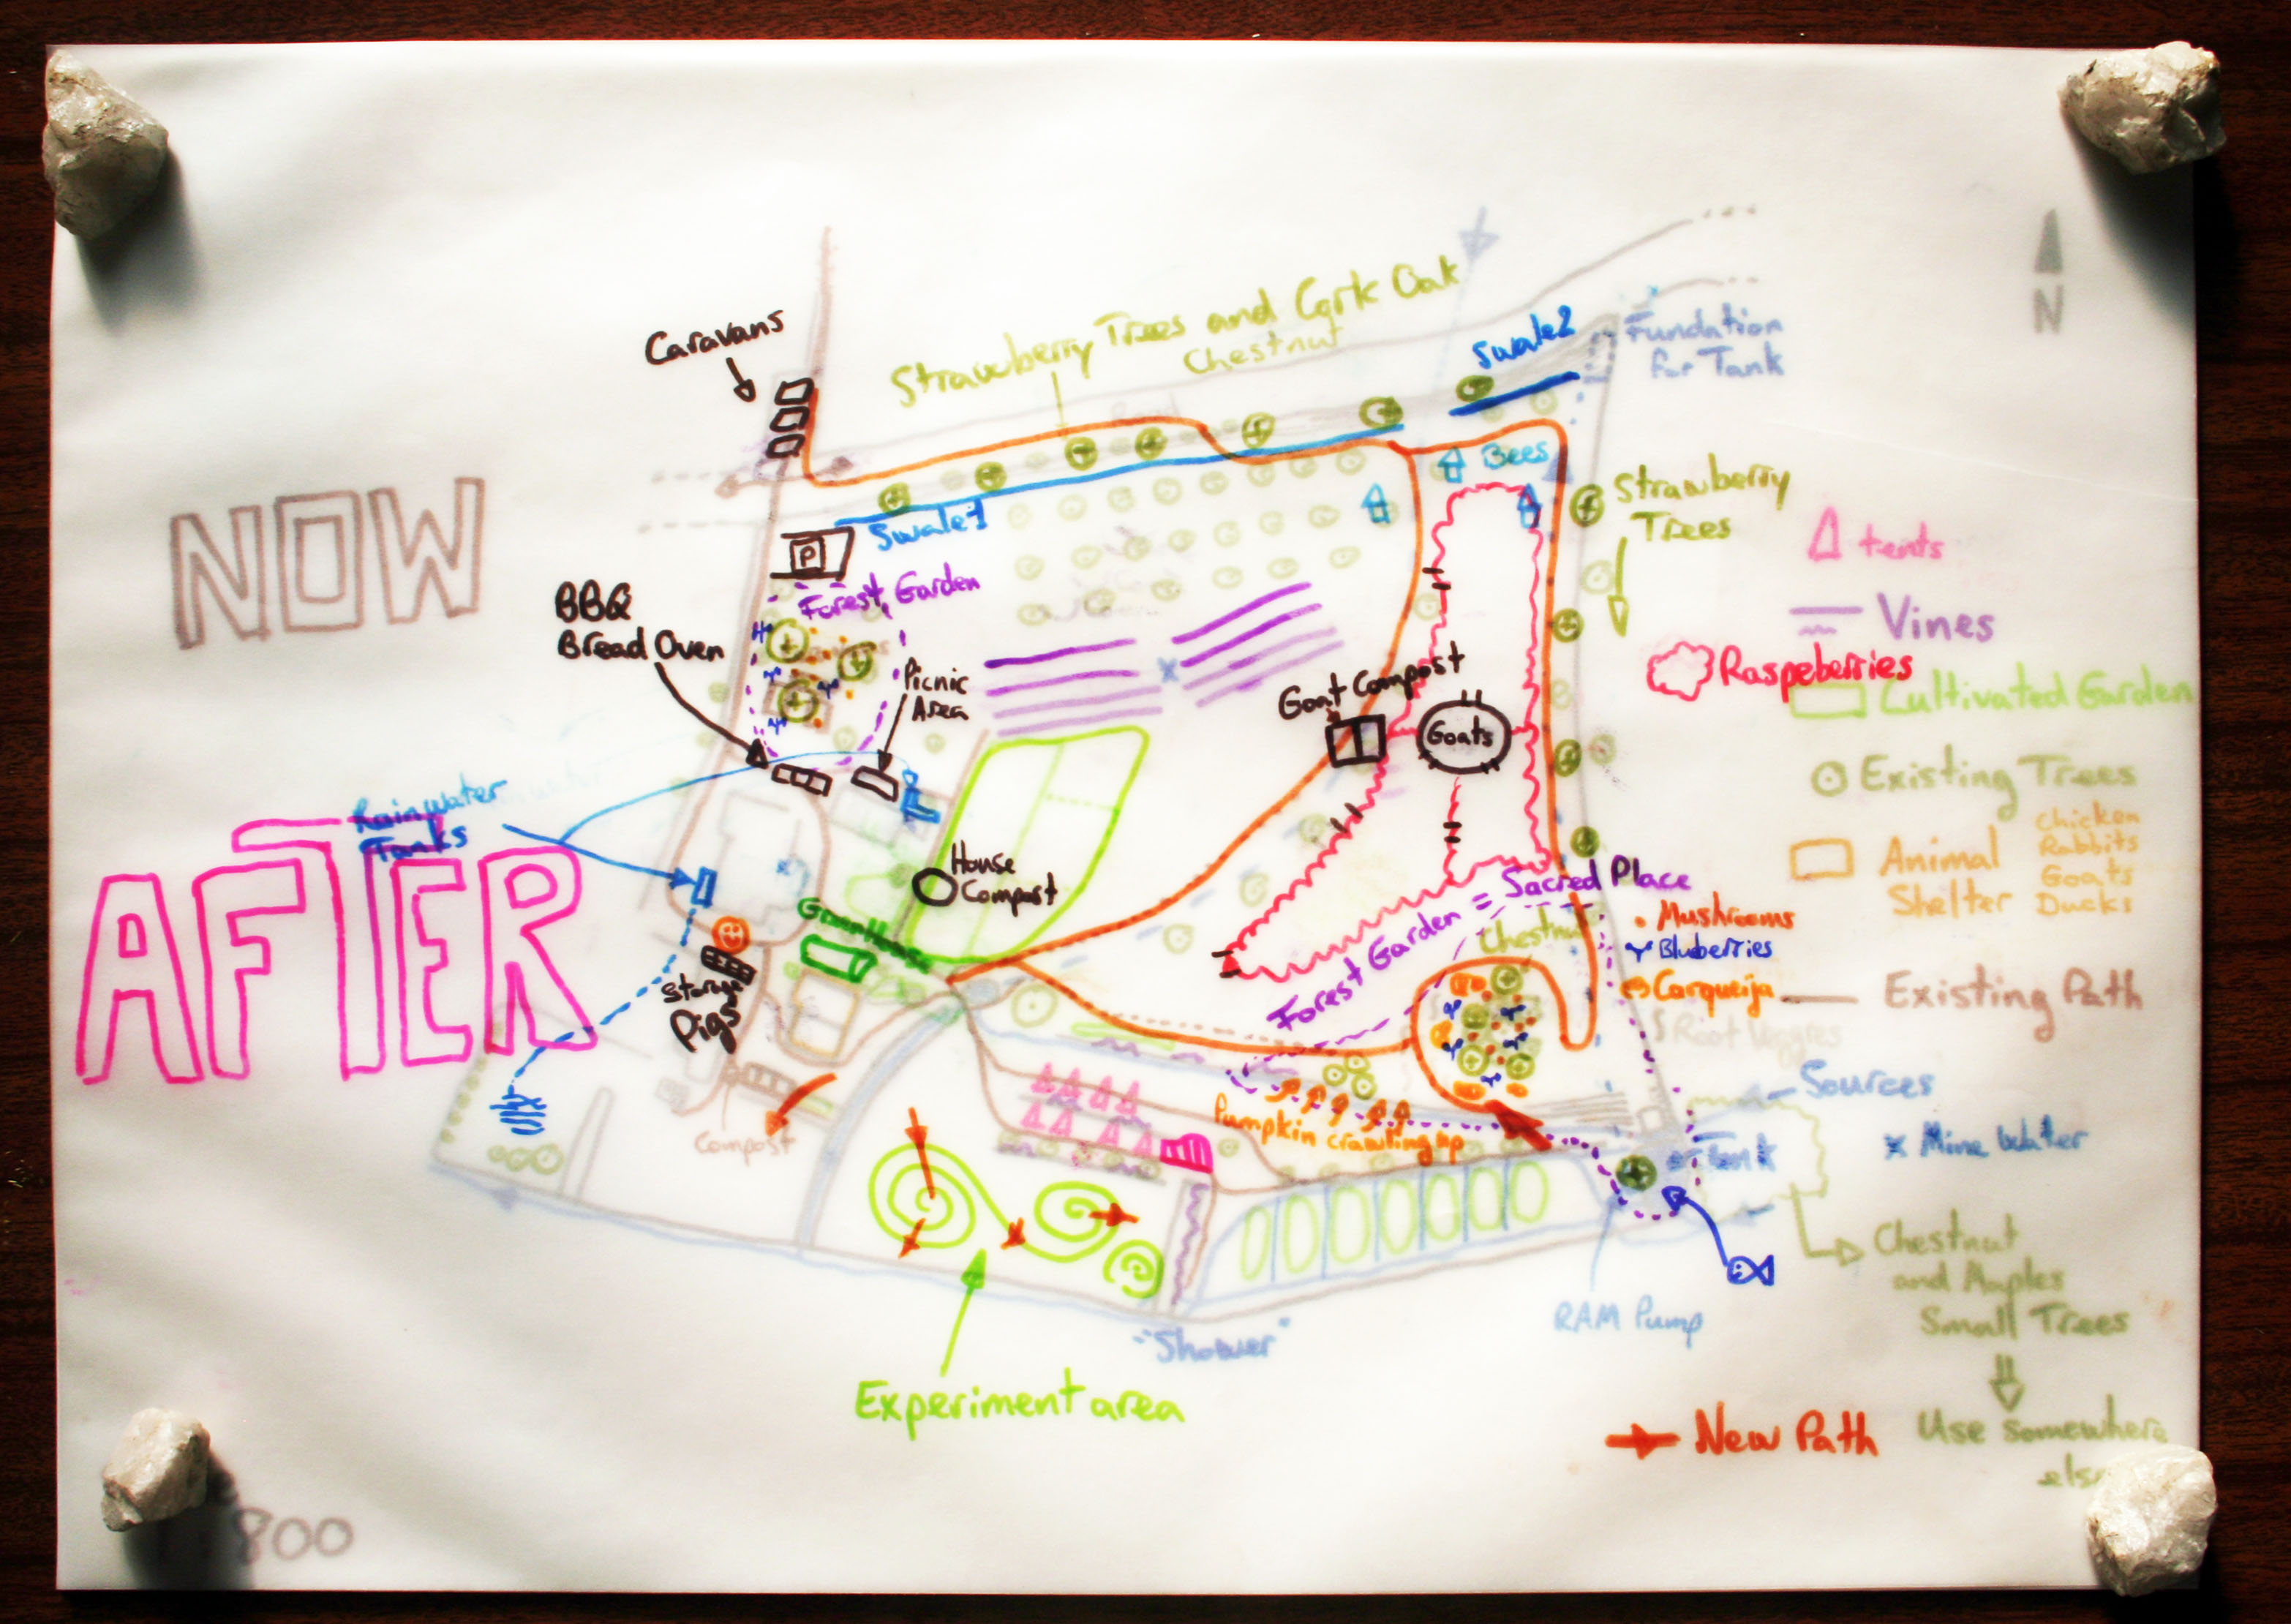 Caravans
Strawberry Trees and Cork Oak
Chestnut
Road
Swale2
Fundation
for Tank
N
NOW
Swale1
Bees
Strawberry
Trees
P
Forest Garden
BBQ
Bread Oven
Picnic
Area
Goat Compost
Goats
tents
Vines
Raspeberries
Cultivated Garden
Existing Trees
Animal
Shelter
Chicken
Rabbits
Goats
Ducks
Rainwater
Tanks
AFTER
House
Compost
Greenhouse
Storage
Pigs
Compost
Forest Garden = Sacred Place
Chestnut
Mushrooms
Bluberries
Carqueija
Existing Path
Root Veggies
Sources
Mine Water
Tank
Pumpkin crawling up
Chestnut
and Maples
Small Trees
Use somewhere
else
RAM Pump
"Shower"
Experiment area
New Path
800